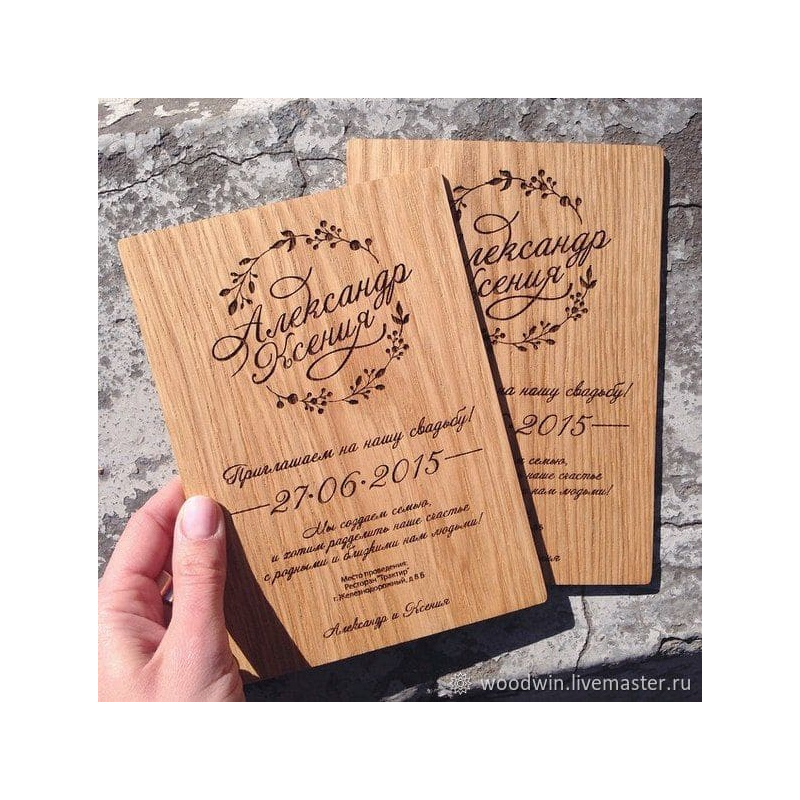 Александр
Ксения
Приглашаем на нашу свадьбу!
27·06·2015
Мы создаем семью,
и хотим разделить наше счастье
с родными и близкими нам людьми!
Место проведения:
Ресторан "Трактир"
г.Железнодорожный, д 8 Б
Александр и Ксения
лександр
сения
а нашу свадьбу!
·2015
семью,
наше счастье
нам людьми!
сения
woodwin.livemaster.ru